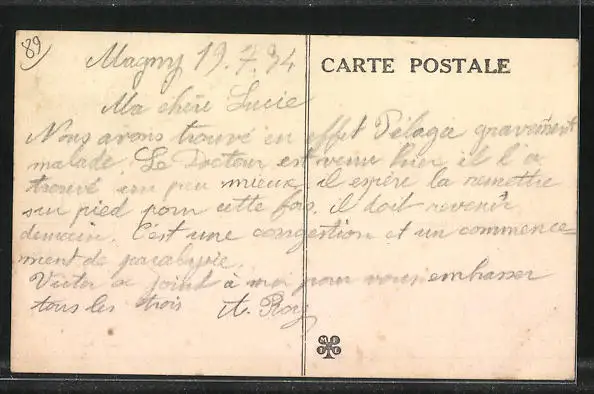 89
Magny 19.7.34
CARTE POSTALE
Ma chère Lucie
Nous avons trouvé en effet Pélagie gravement
malade. Le Docteur est venu hier il l'a
trouvé un peu mieux, il espère la remettre
sur pied pour cette fois, il doit revenir
demain. C'est une congestion et un commence=
ment de paralysie.
Victor se joint à moi pour vous embrasser
tous les trois A. Roy